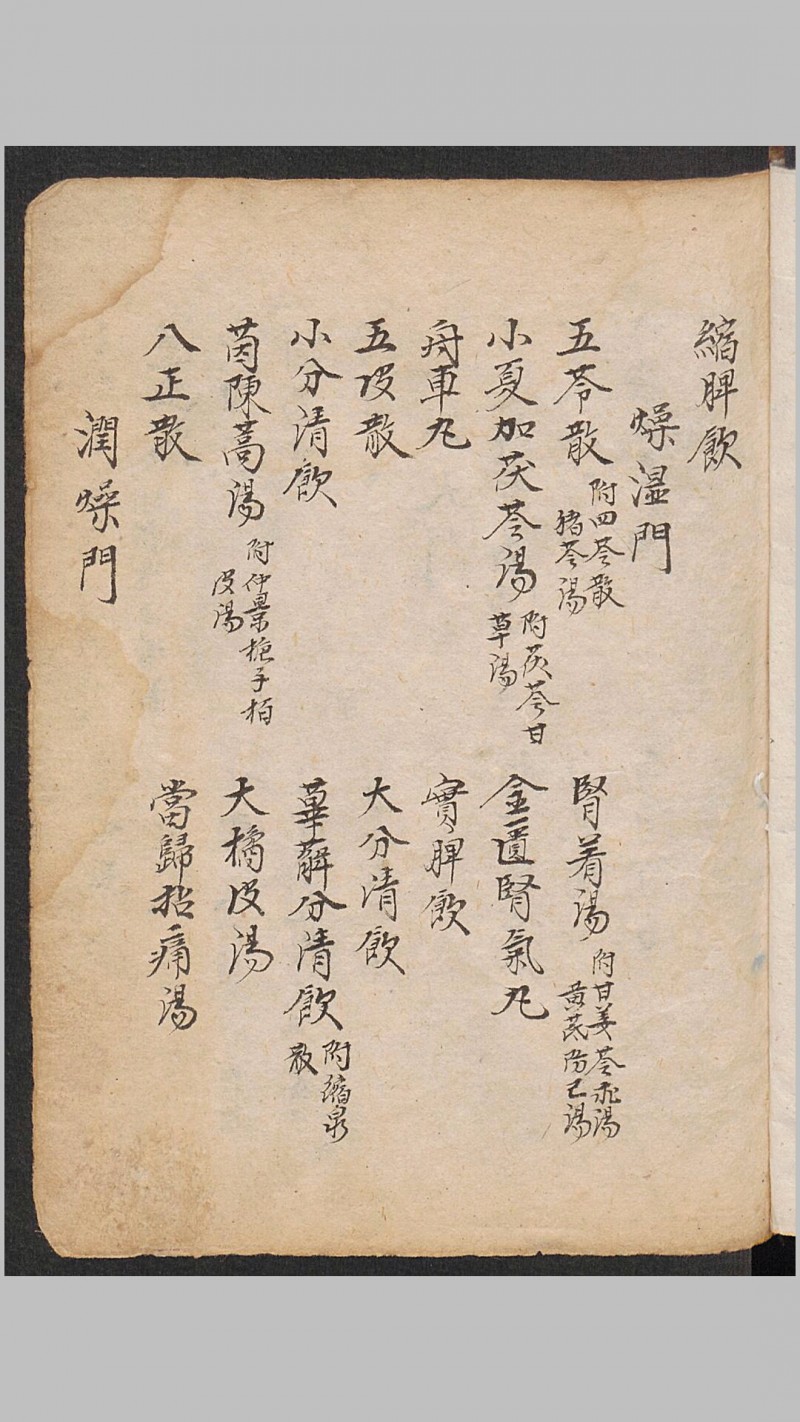 縮脾飲
燥湿門
五苓散 附四苓散
猪苓湯
腎着湯 附甘姜苓朮湯
黄芪防己湯
小夏加茯苓湯 附茯苓甘
草湯
金匱腎氣丸
舟車丸
實脾飲
五皮散
大分清飲
小分清飲
萆薢分清飲 附縮泉
散
茵陳蒿湯 附仲景梔子栢
皮湯
大橘皮湯
八正散
當歸拈痛湯
潤燥門